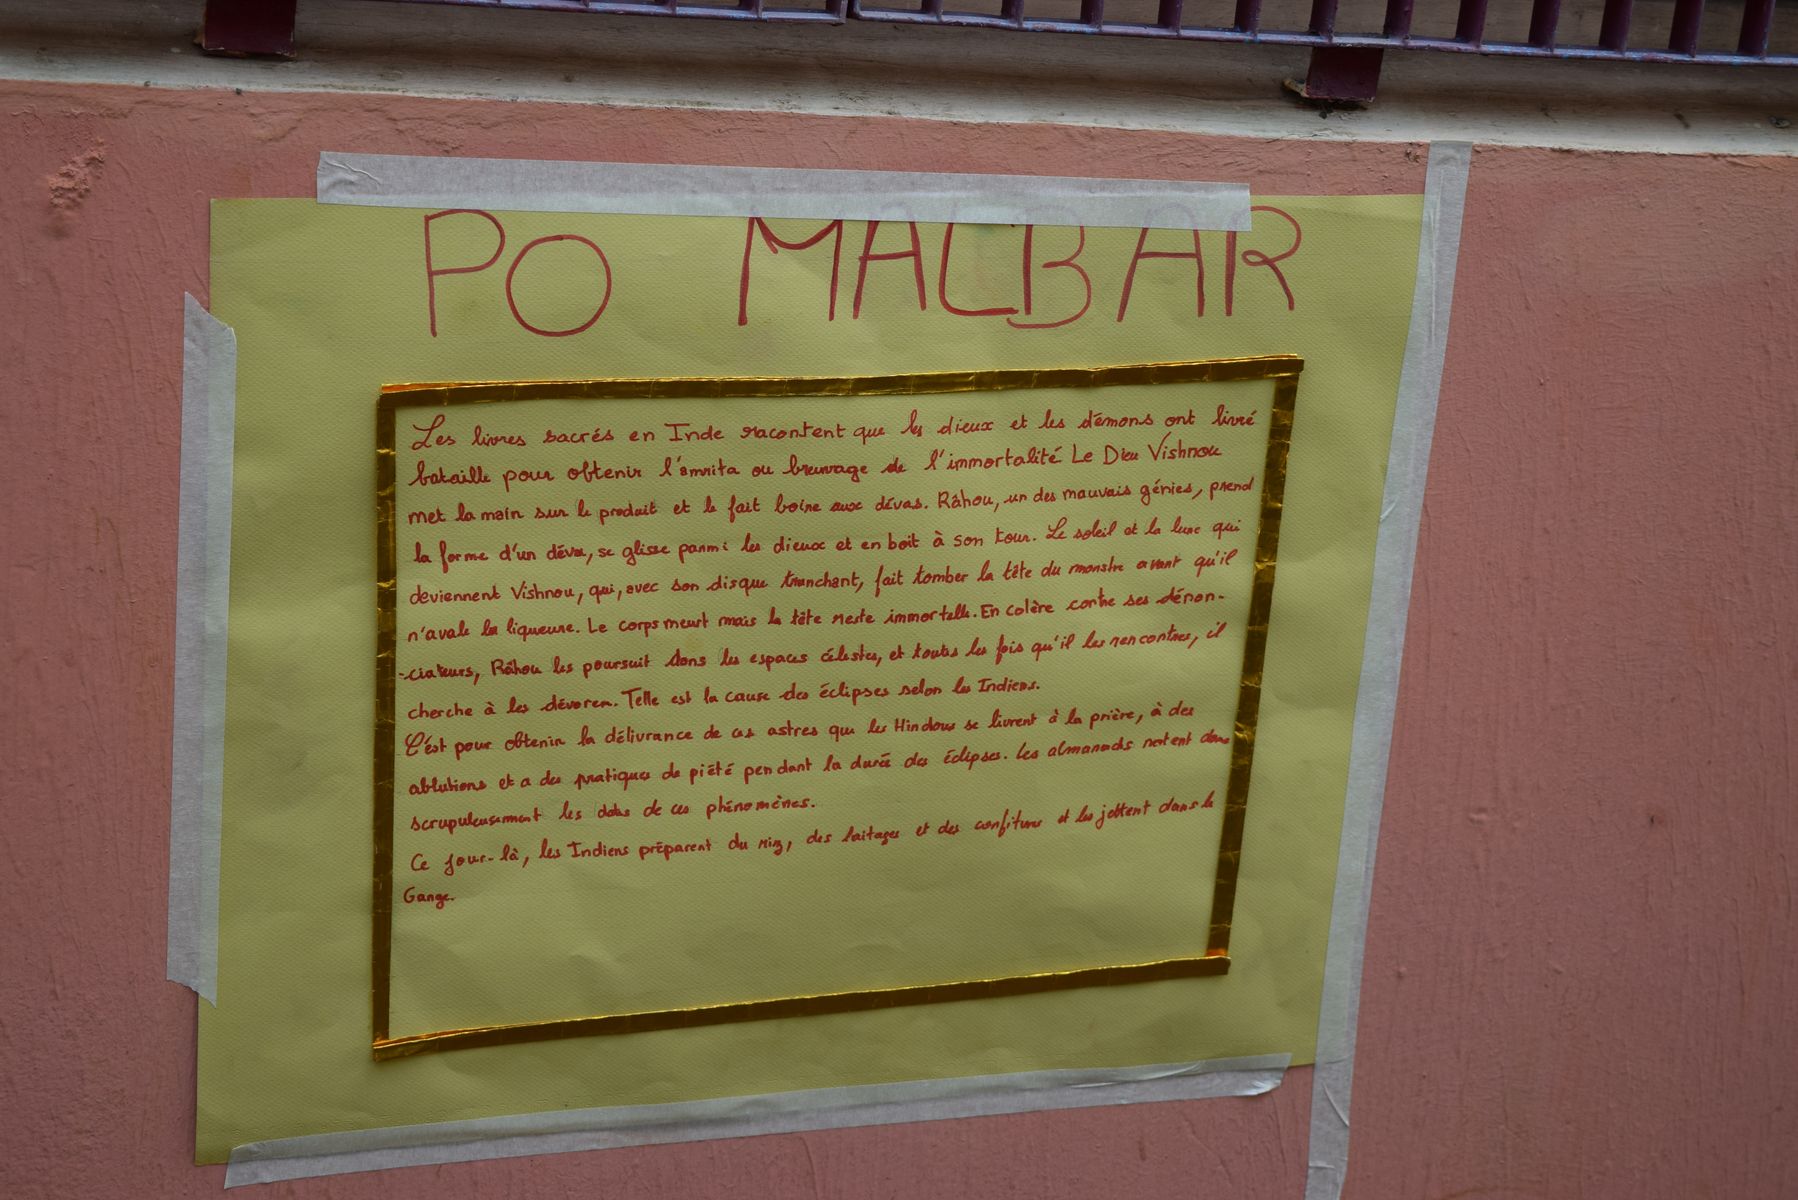 PO MALBAR
Les livres sacrés en Inde racontent que les dieux et les démons ont livré
bataille pour obtenir l'amrita ou breuvage de l'immortalité Le Dieu Vishnou
met la main sur le produit et le fait boire aux dévas. Râhou, un des mauvais génies, prend
la forme d'un déva, se glisse parmi les dieux et en boit à son tour. Le soleil et la lune qui
deviennent Vishnou, qui, avec son disque tranchant, fait tomber la tête du monstre avant qu'il
n'avale la liqueure. Le corps meurt mais la tête reste immortelle. En colère contre ses dénon-
-ciateurs, Râhou les poursuit dans les espaces célestes, et toutes les fois qu'il les rencontres, il
cherche à les dévorer. Telle est la cause des éclipses selon les Indiens.
C'est pour obtenir la délivrance de ces astres que les Hindous se livrent à la prière, à des
ablutions et a des pratiques de piété pendant la durée des éclipses. Les almanachs notent dans
scrupuleusement les dates de ces phénomènes.
Ce jour-là, les Indiens préparent du riz, des laitages et des confitures et les jettent dans le
Gange.